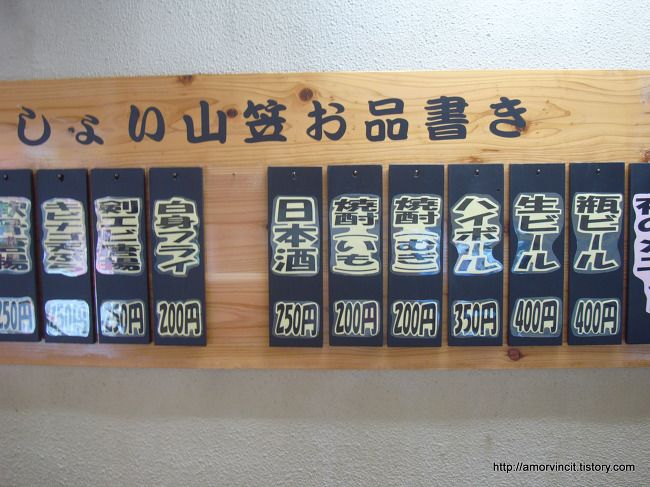 しょい山笠お品書き
瓶ビール
400円
生ビール
400円
ハイボール
350円
焼酎(むぎ)
200円
焼酎(いも)
200円
日本酒
250円
白身フライ
200円
250円
250円
250円
http://amorvincit.tistory.com